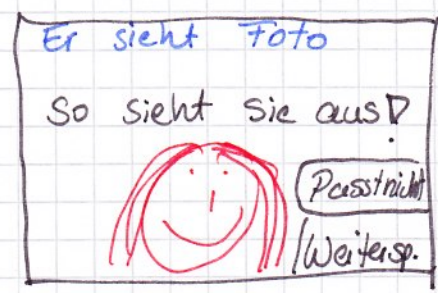 Er sieht Foto
So sieht sie aus!
Passt nicht
Weitersp.